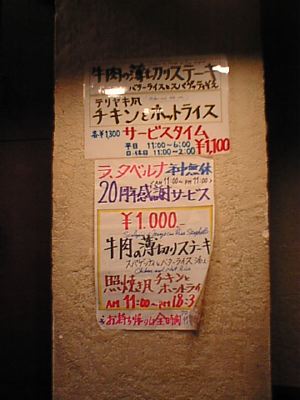 牛肉の薄切りステーキ
バターライスとスパゲッティ添え
テリヤキ風
チキンとホットライス
各¥1,300 サービスタイム
平日 11:00~6:00
日・休日 11:00~2:00 ¥1,100
ラ、タベルナ 年中無休
AM 11:00~PM 11:00
20周年感謝サービス
¥1.000—
牛肉の薄切りステーキ
スパゲッティとバターライス添え
Chicken and Hot Rice
照焼き風チキンと
ホットライ
AM 11:00~PM 18:3
お持ち帰りは全時間